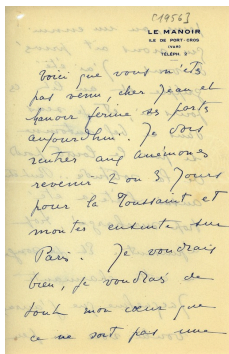 [1956]
LE MANOIR
ILE DE PORT-CROS
(VAR)
TÉLÉPH. 3
Voici que vous n'êtes
pas venu, cher Jean et
Manoir ferme ses portes
aujourd'hui. Je dois
rentrer aux Anémones
revenir 2 ou 3 jours
pour la Toussaint et
monter ensuite sur
Paris. Je voudrais
bien, je voudrais de
tout mon cœur que
ce ne soit pas une